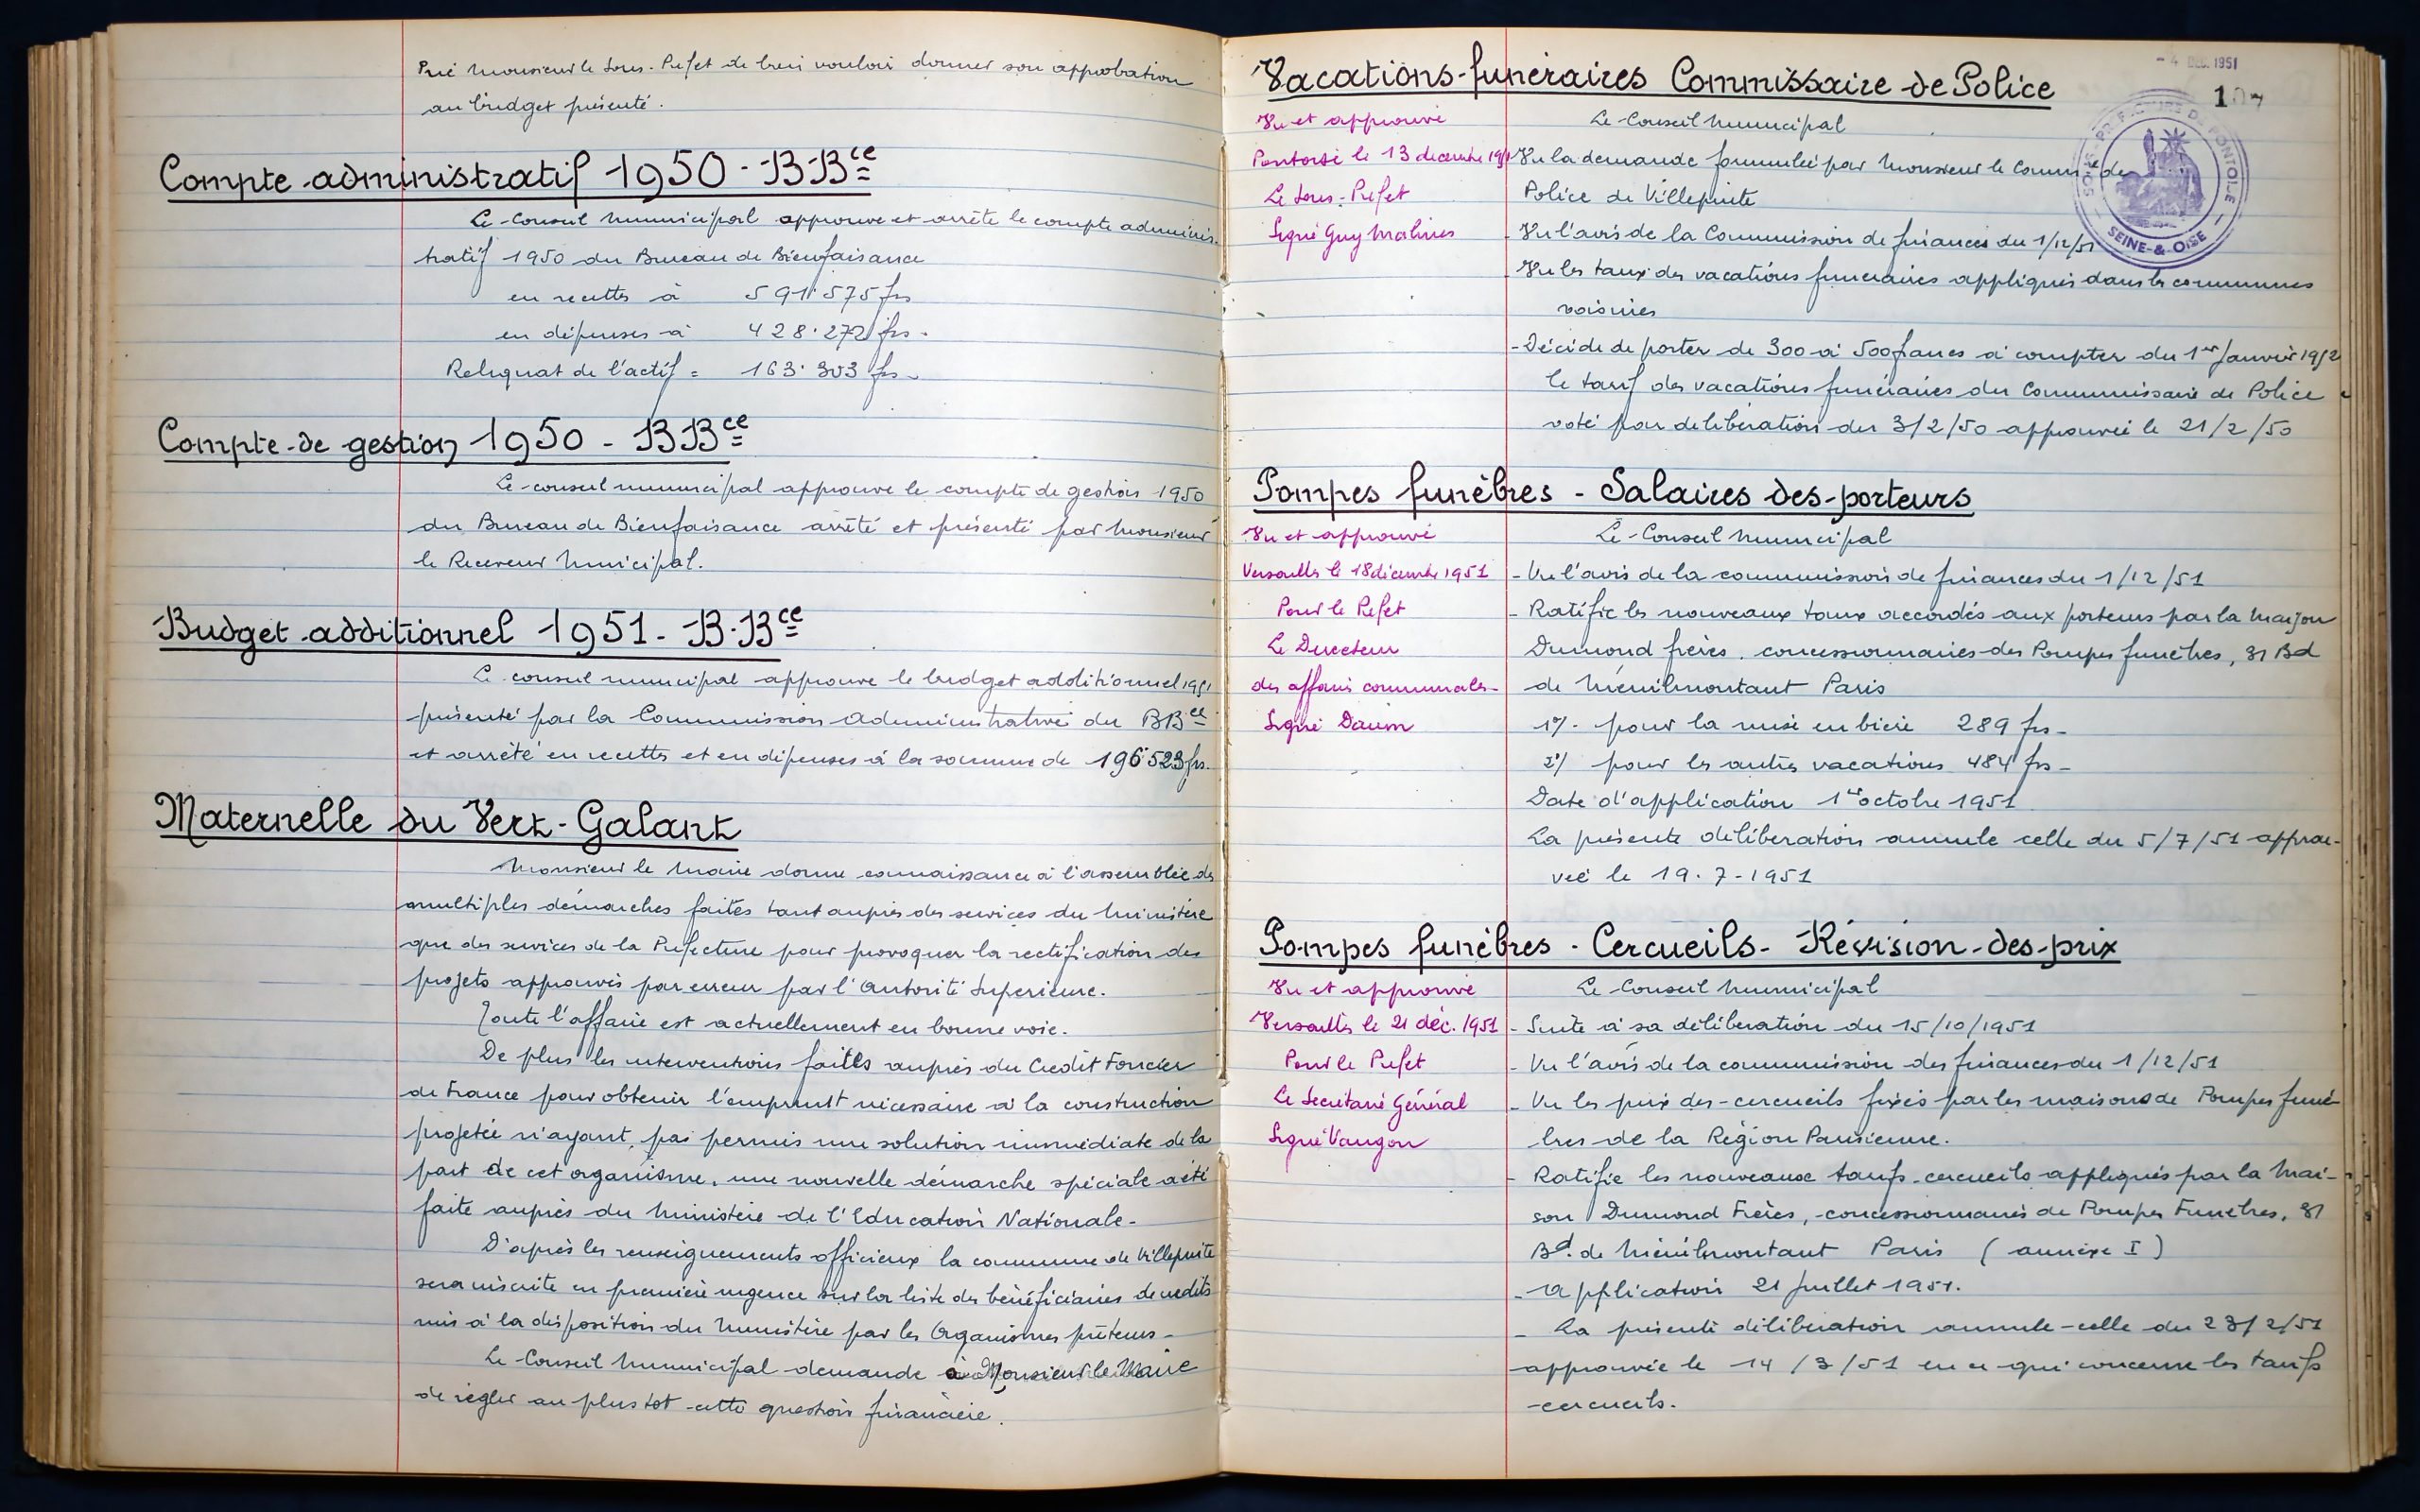 Prie Monsieur le Sous-Prefet de bien vouloir donner son approbation
au budget présenté.
Compte administratif 1950 - B Bce
Le Conseil municipal approuve et arrête le compte adminis-
tratif 1950 du Bureau de Bienfaisance
en recettes à 591.575 frs
en dépenses à 428.272 frs.
Reliquat de l'actif = 163.303 frs.
Compte de gestion 1950 - B Bce
Le conseil municipal approuve le compte de gestion 1950
du Bureau de Bienfaisance arrêté et présenté par Monsieur
le Receveur Municipal.
Budget additionnel 1951 - B.Bce
Le conseil municipal approuve le budget additionnel 1951
présenté par la Commission Administrative du BBce
et arrêté en recettes et en dépenses à la somme de 196.523 frs.
Maternelle du Vert-Galant
Monsieur le Maire donne connaissance à l'assemblée des
multiples démarches faites tant auprès des services du Ministère
que des services de la Prefecture pour provoquer la rectification des
projets approuvés par erreur par l'Autorité Superieure.
Toute l'affaire est actuellement en bonne voie.
De plus les interventions faites auprès du Credit Foncier
de France pour obtenir l'emprunt nécessaire à la construction
projetée n'ayant pas permis une solution immédiate de la
part de cet organisme, une nouvelle démarche spéciale a été
faite auprès du Ministère de l'Education Nationale.
D'après les renseignements officieux la commune de Villepinte
sera inscrite en première urgence sur la liste des bénéficiaires de crédits
mis à la disposition du Ministère par les Organismes prêteurs.
Le Conseil Municipal demande à Monsieur le Maire
de régler au plus tot cette question financière.
- 4 DEC. 1951
107
SOUS-PREFECTURE DE PONTOISE
SEINE-&-OISE
Vacations-funéraires Commissaire de Police
Vu et approuvé
Pontoise le 13 decembre 1951
Le Sous-Préfet
Signé Guy Malines
Le Conseil Municipal
Vu la demande formulée par Monsieur le Commre de
Police de Villepinte
- Vu l'avis de la Commission de finances du 1/12/51
- Vu les taux des vacations funeraires appliqués dans les communes
voisines
- Décide de porter de 300 à 500 francs à compter du 1er Janvier 1952
le tarif des vacations funéraires du Commissaire de Police
voté par deliberation du 3/2/50 approuvée le 21/2/50
Pompes funèbres - Salaires des-porteurs
Vu et approuvé
Versailles le 18 décembre 1951
Pour le Préfet
Le Directeur
des affaires communales
Signé Daum
Le Conseil Municipal
- Vu l'avis de la commission de finances du 1/12/51
- Ratifie les nouveaux taux accordés aux porteurs par la Maison
Dumond frères, concessionnaires des Pompes funèbres, 81 Bd
de Ménilmontant Paris
1°/. pour la mise en bière 289 frs.
2°/ pour les autres vacations 484 frs.
Date d'application 1er octobre 1951
La présente délibération annule celle du 5/7/51 approu-
vée le 19.7-1951
Pompes funèbres - Cercueils - Révision-des-prix
Vu et approuvé
Versailles le 21 déc. 1951
Pour le Préfet
Le Secrétaire Général
Signé Vaugon
Le Conseil Municipal
- Suite à sa délibération du 15/10/1951
- Vu l'avis de la commission des finances du 1/12/51
- Vu les prix des cercueils fixés par les maisons de Pompes funè-
bres de la Région Parisienne.
- Ratifie les nouveaux tarifs cercueils appliqués par la Mai-
son Dumond Frères, concessionnaires de Pompes Funèbres, 81
Bd. de Ménilmontant Paris (annexe I)
- Application 21 Juillet 1951.
- La présente délibération annule celle du 23/2/51
approuvée le 14/3/51 en ce qui concerne les tarifs
cercueils.